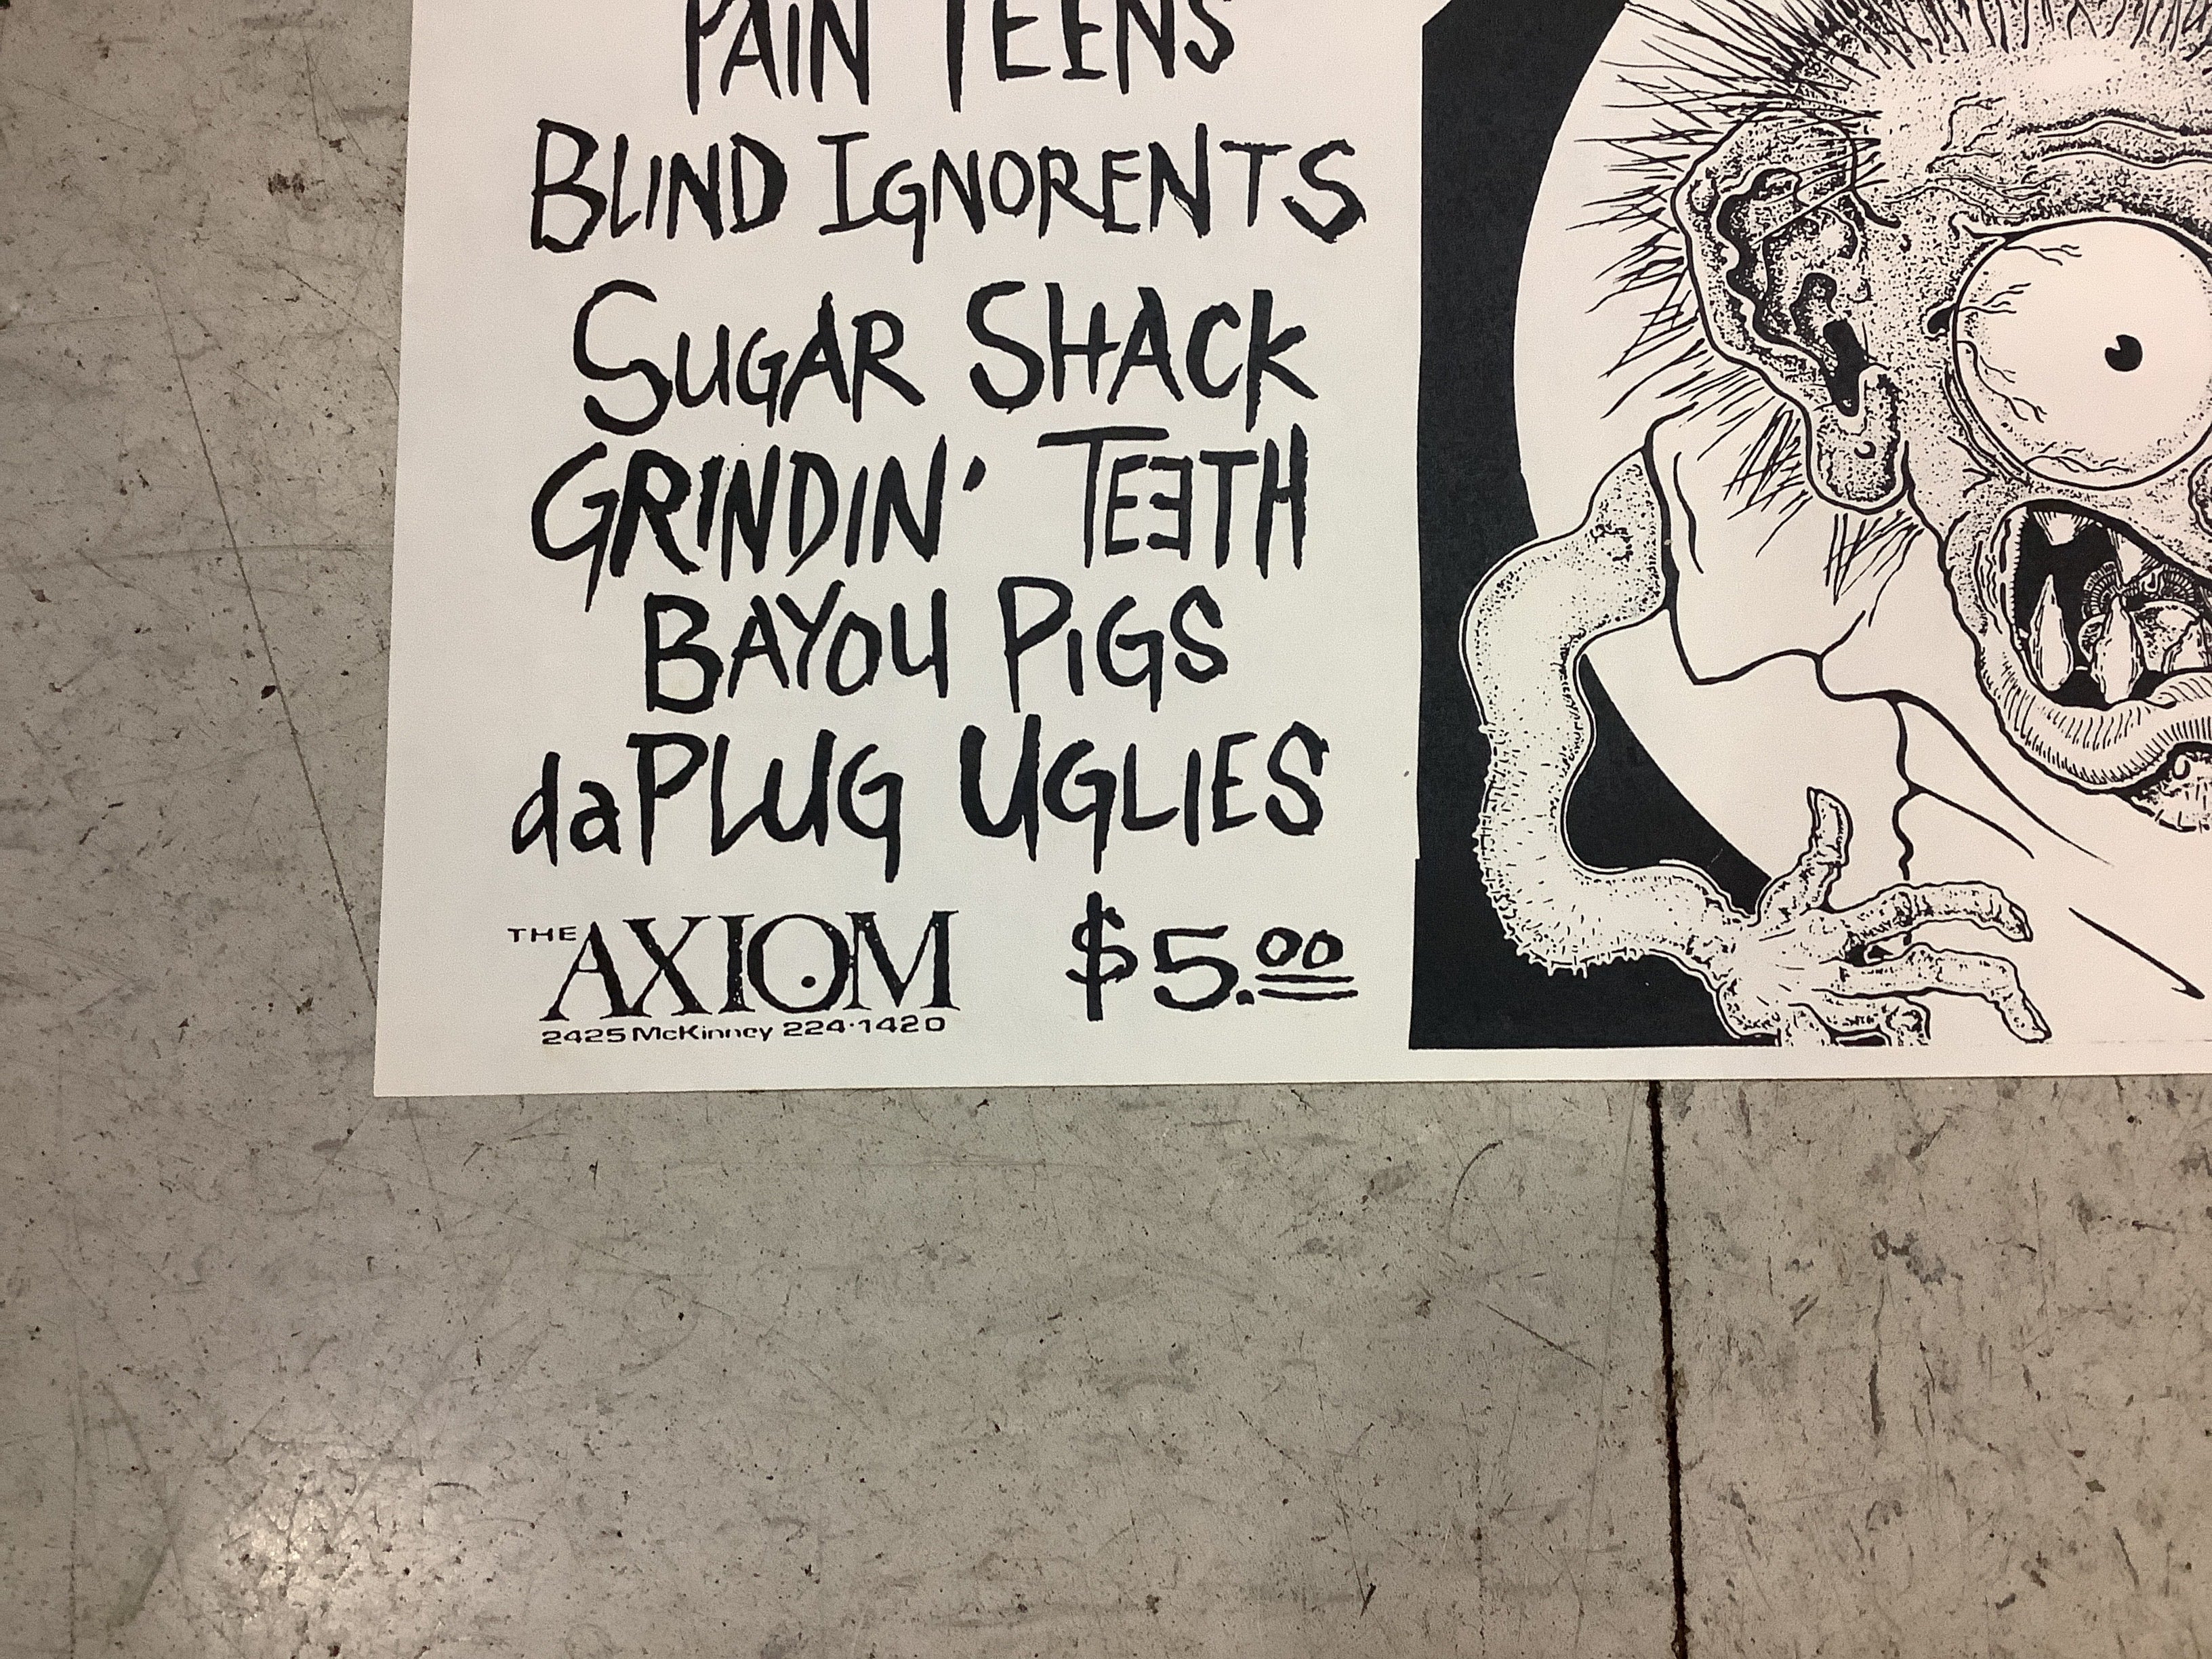 PAIN TEENS
BLIND IGNORENTS
SUGAR SHACK
GRINDIN' TEETH
BAYOU PIGS
daPLUG UGLIES
THE AXIOM $5.00
2425 McKinney 224·1420